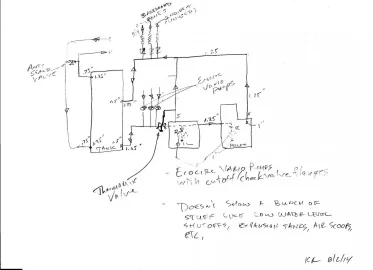 BASEBOARD
ZONES
ANTI
SCALD
VALVE
1.25
ECOCIRC
VARIO
PUMPS
.75"
.75"
1.25"
1.5"
1.25"
1"
.75"
TANK
1.25"
1.25"
THERMOSTATIC
VALVE
- ECOCIRC VARIO PUMPS
WITH CUTOFF/CHECK VALVE FLANGES
- DOESN'T SHOW A BUNCH OF
STUFF LIKE LOW WATER LEVEL
SHUTOFFS, EXPANSION TANKS, AIR SCOOPS,
ETC.
KR 8/2/14